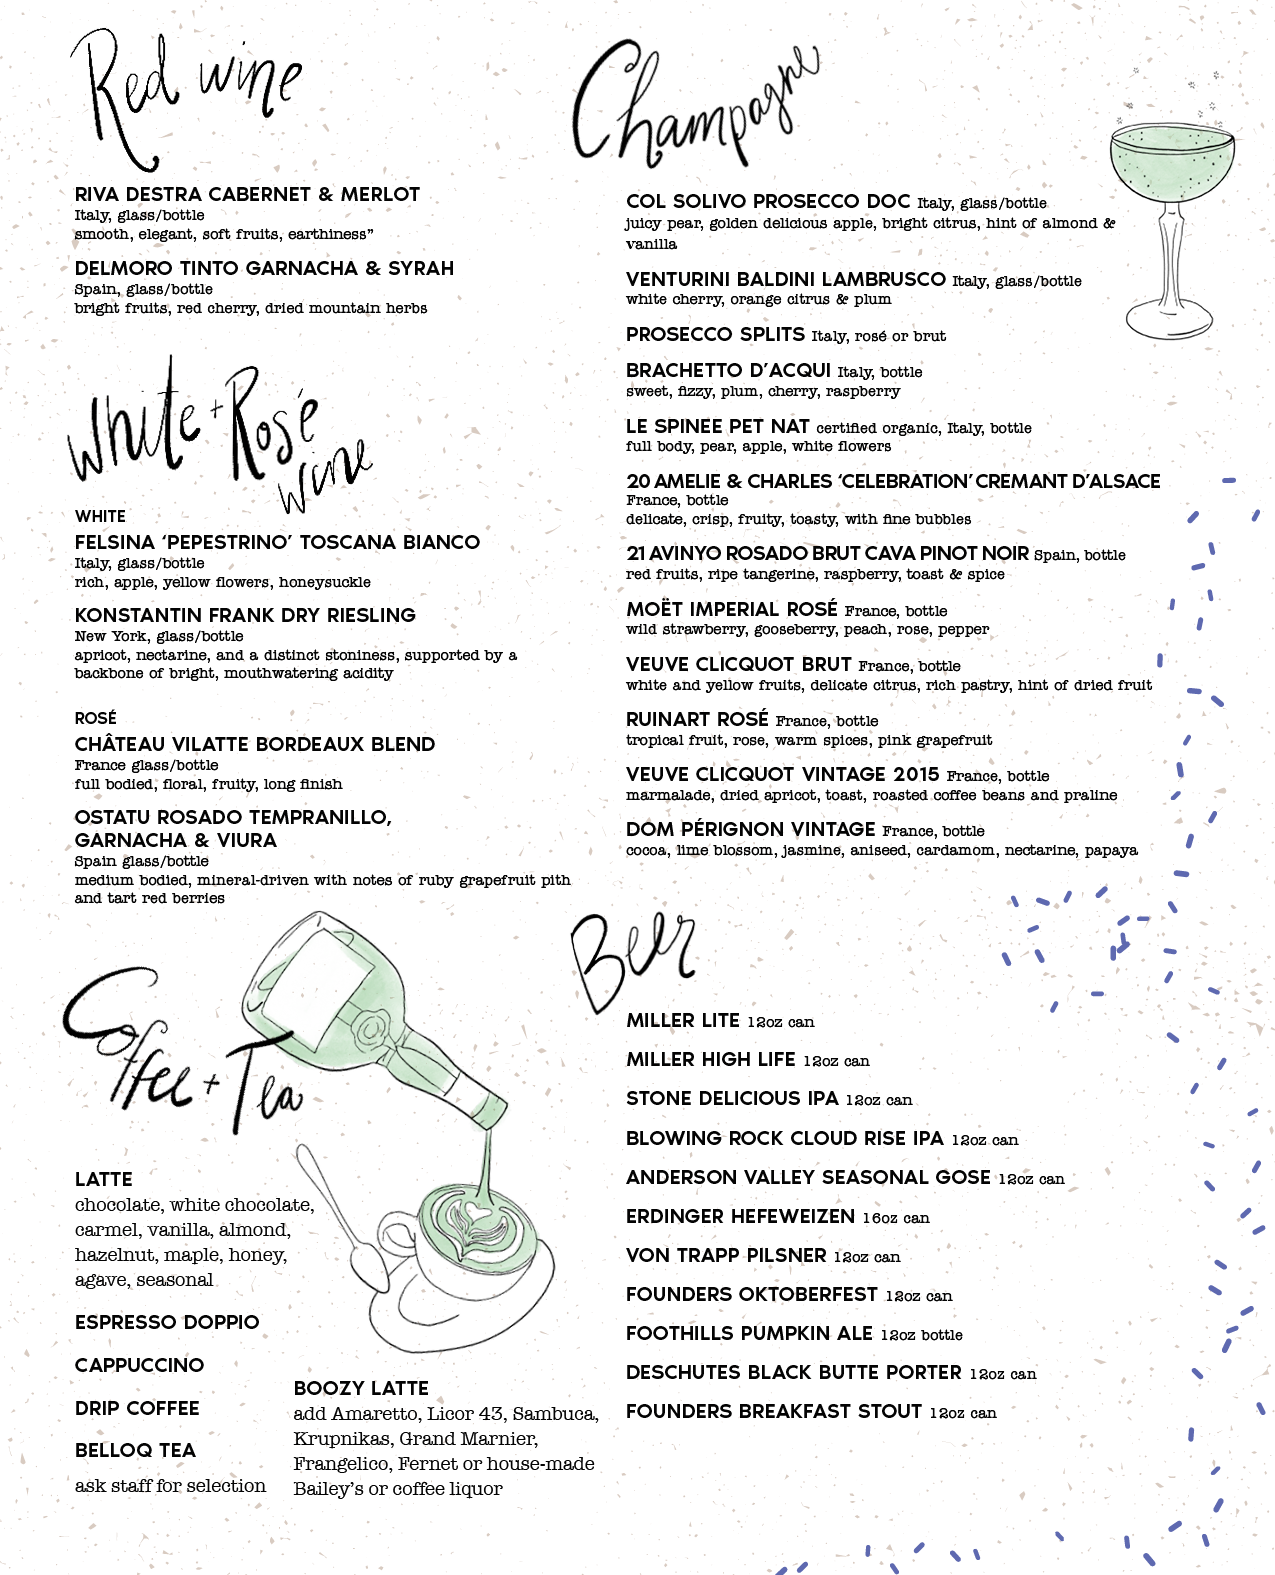 Red wine
RIVA DESTRA CABERNET & MERLOT
Italy, glass/bottle
smooth, elegant, soft fruits, earthiness”
DELMORO TINTO GARNACHA & SYRAH
Spain, glass/bottle
bright fruits, red cherry, dried mountain herbs
White + Rosé
wine
WHITE
FELSINA ‘PEPESTRINO’ TOSCANA BIANCO
Italy, glass/bottle
rich, apple, yellow flowers, honeysuckle
KONSTANTIN FRANK DRY RIESLING
New York, glass/bottle
apricot, nectarine, and a distinct stoniness, supported by a
backbone of bright, mouthwatering acidity
ROSÉ
CHÂTEAU VILATTE BORDEAUX BLEND
France glass/bottle
full bodied, floral, fruity, long finish
OSTATU ROSADO TEMPRANILLO,
GARNACHA & VIURA
Spain glass/bottle
medium bodied, mineral-driven with notes of ruby grapefruit pith
and tart red berries
Coffee + Tea
LATTE
chocolate, white chocolate,
carmel, vanilla, almond,
hazelnut, maple, honey,
agave, seasonal
ESPRESSO DOPPIO
CAPPUCCINO
DRIP COFFEE
BELLOQ TEA
ask staff for selection
BOOZY LATTE
add Amaretto, Licor 43, Sambuca,
Krupnikas, Grand Marnier,
Frangelico, Fernet or house-made
Bailey’s or coffee liquor
Champagne
COL SOLIVO PROSECCO DOC Italy, glass/bottle
juicy pear, golden delicious apple, bright citrus, hint of almond &
vanilla
VENTURINI BALDINI LAMBRUSCO Italy, glass/bottle
white cherry, orange citrus & plum
PROSECCO SPLITS Italy, rosé or brut
BRACHETTO D’ACQUI Italy, bottle
sweet, fizzy, plum, cherry, raspberry
LE SPINEE PET NAT certified organic, Italy, bottle
full body, pear, apple, white flowers
20 AMELIE & CHARLES ‘CELEBRATION’ CREMANT D’ALSACE
France, bottle
delicate, crisp, fruity, toasty, with fine bubbles
21 AVINYO ROSADO BRUT CAVA PINOT NOIR Spain, bottle
red fruits, ripe tangerine, raspberry, toast & spice
MOËT IMPERIAL ROSÉ France, bottle
wild strawberry, gooseberry, peach, rose, pepper
VEUVE CLICQUOT BRUT France, bottle
white and yellow fruits, delicate citrus, rich pastry, hint of dried fruit
RUINART ROSÉ France, bottle
tropical fruit, rose, warm spices, pink grapefruit
VEUVE CLICQUOT VINTAGE 2015 France, bottle
marmalade, dried apricot, toast, roasted coffee beans and praline
DOM PÉRIGNON VINTAGE France, bottle
cocoa, lime blossom, jasmine, aniseed, cardamom, nectarine, papaya
Beer
MILLER LITE 12oz can
MILLER HIGH LIFE 12oz can
STONE DELICIOUS IPA 12oz can
BLOWING ROCK CLOUD RISE IPA 12oz can
ANDERSON VALLEY SEASONAL GOSE 12oz can
ERDINGER HEFEWEIZEN 16oz can
VON TRAPP PILSNER 12oz can
FOUNDERS OKTOBERFEST 12oz can
FOOTHILLS PUMPKIN ALE 12oz bottle
DESCHUTES BLACK BUTTE PORTER 12oz can
FOUNDERS BREAKFAST STOUT 12oz can